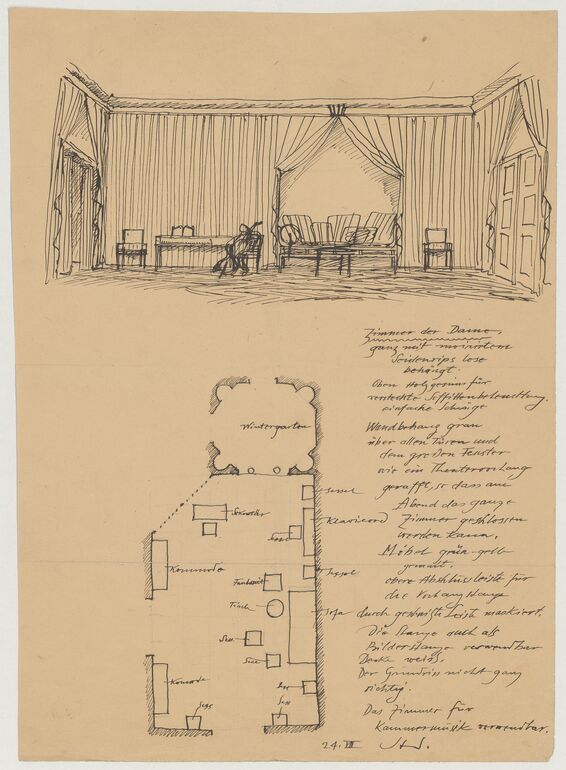 Zimmer der Dame,
ganz mit moiriertem
Seidenrips lose
behängt.
Oben Holzgesims für
versteckte Soffittenbeleuchtung.
einfache
Wandbehang grau
über allen Türen und
dem großen Fenster
wie ein Theatervorhang
gerafft, so dass am
Abend das ganze
Zimmer geschlossen
werden kann.
Möbel grün-gelb
obere Abschlussleiste für
die Vorhangstange
durch Leiste markiert.
Die Stange auch als
Bilderstange verwendbar
Decke weiss.
Der Grundriss nicht ganz
richtig.
Das Zimmer für
Kammermusik verwendbar.
24. VII
Wintergarten
Sessel
Klavicord
Sessel
Kommode
Fauteuil
Tisch
Sofa
Sess
Sess
Kommode
Sess
Sess
Sess